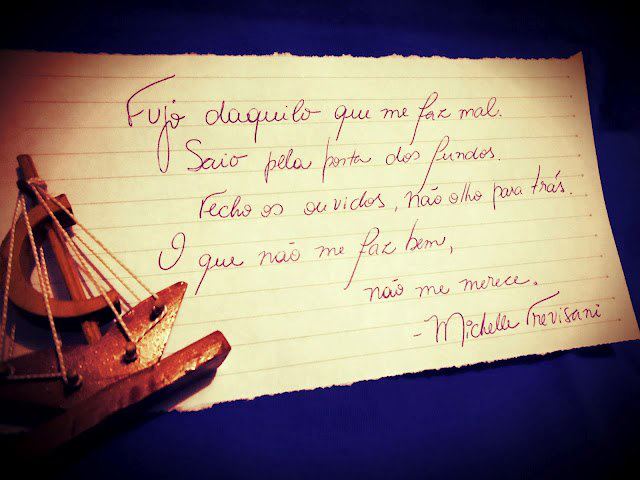 Fujo daquilo que me faz mal.
Saio pela porta dos fundos.
Fecho os ouvidos, não olho para trás.
O que não me faz bem,
não me merece.
- Michelle Trevisani